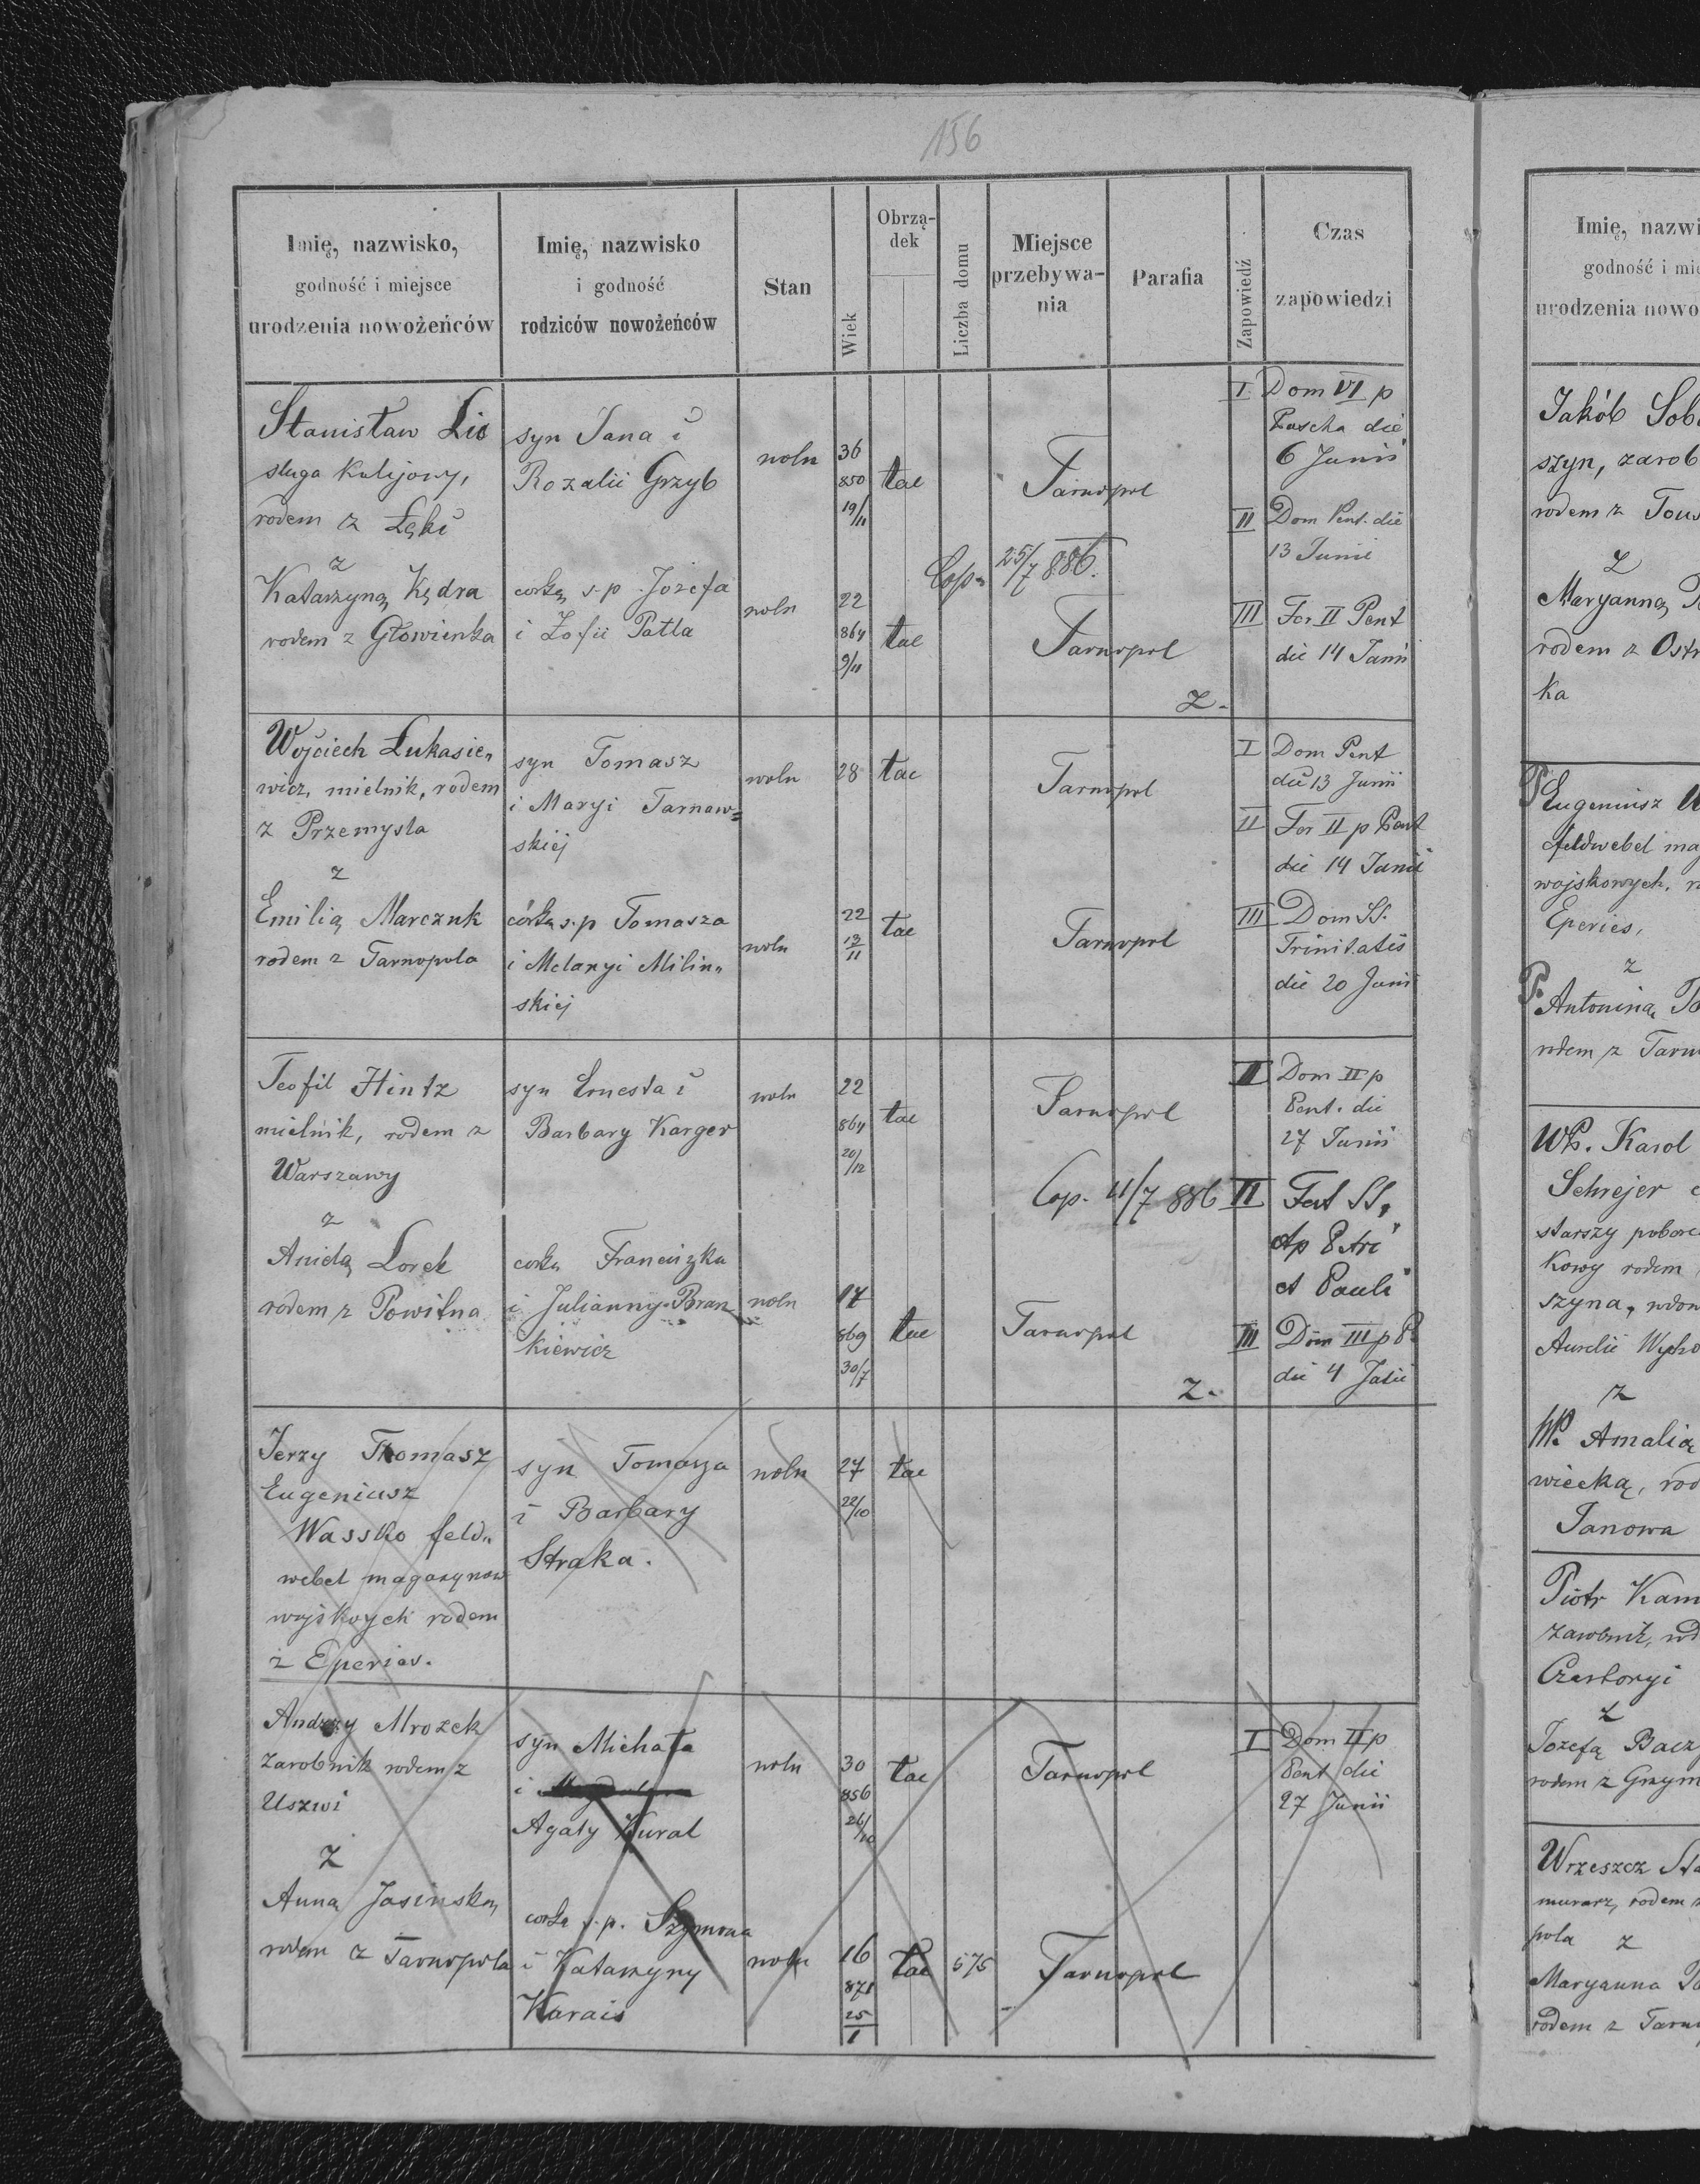 156
Imię, nazwisko,
godność i miejsce
urodzenia nowożeńców
Imię, nazwisko
i godność
rodziców nowożeńców
Stan
Wiek
Obrzą-
dek
Liczba domu
Miejsce
przebywa-
nia
Parafia
Zapowiedź
Czas
zapowiedzi
Stanisław Lis
sługa kolejowy,
rodem z Łęki
z
Katarzyną Kędra
rodem z Głowienka
syn Jana i
Rozalii Grzyb
corką s.p. Jozefa
i Zofii Patla
woln
36
850
19/11
tac
Tarnopol
Cop. 25/7 886.
woln
22
864
9/11
tac
Tarnopol
Z.
I Dom VI p
Pascha die
6 Junii
II Dom Pent. die
13 Junii
III Fer II Pent
die 14 Junii
Wojciech Łukasie„
wicz, mielnik, rodem
z Przemysla
z
Emilią Marczuk
rodem z Tarnopola
syn Tomasz
i Maryi Tarnaw=
skiej
córką s.p Tomasza
i Melanyi Milin„
skiej
woln
28
tac
Tarnopol
woln
22
13
11
tac
Tarnopol
I Dom Pent
die 13 Junii
II Fer II p Pent
die 14 Junii
III Dom SS.
Trinitatis
die 20 Juni
Teofil Hintz
mielnik, rodem z
Warszawy
z
Anielą Lorek
rodem z Powitna
syn Ernesta i
Barbary Karger
corką Franciszka
i Julianny Bran
kiewicz
woln
22
864
20/12
tac
Tarnopol
Cop. 11/7 886
woln
17
869
30/7
tac
Tarnopol
Z.
I Dom II p
Pent. die
27 Junii
II Fest SS,
Ap Petri
et Pauli
III Dom III p P
die 4 Julii
Jerzy Tomasz
Eugeniusz
Wassko feld„
webel magazynow
wojskoych rodem
z Eperies.
syn Tomasza
i Barbary
Straka.
woln
27
22/10
tac
Andrzy Mrozek
zarobnik rodem z
Uszwi
Z
Anną Jasinską
rodem z Tarnopola
syn Michała
i
Agaty Kural
corką s.p. Szymona
i Katarzyny
Karais
woln
30
856
26/10
tac
Tarnopol
woln
16
871
25
1
tac
575
Tarnopol
I Dom II p
Pent die
27 Junii
Imię, nazwi
godność i mie
urodzenia nowo
Jakób Sob
szyn, zarob
rodem z Tous
Z
Maryanną
rodem z Ostr
ka
P Eugeniusz
feldwebel ma
wojskowych, r
Eperies,
z
P. Antoniną
rodem z Tarn
WP. Karol
Schrejer
starszy pobor
kowy rodem
szyna, wdow
Aurelii Wycho
z
WP. Amalią
wiecką, rod
Janowa
Piotr Kam
zarobnik, rod
Czartoryi
z
Jozefą Bacz
rodem z Grzym
Wrzeszcz Sta
murarz, rodem z
pola z
Maryanna
rodem z Tarn